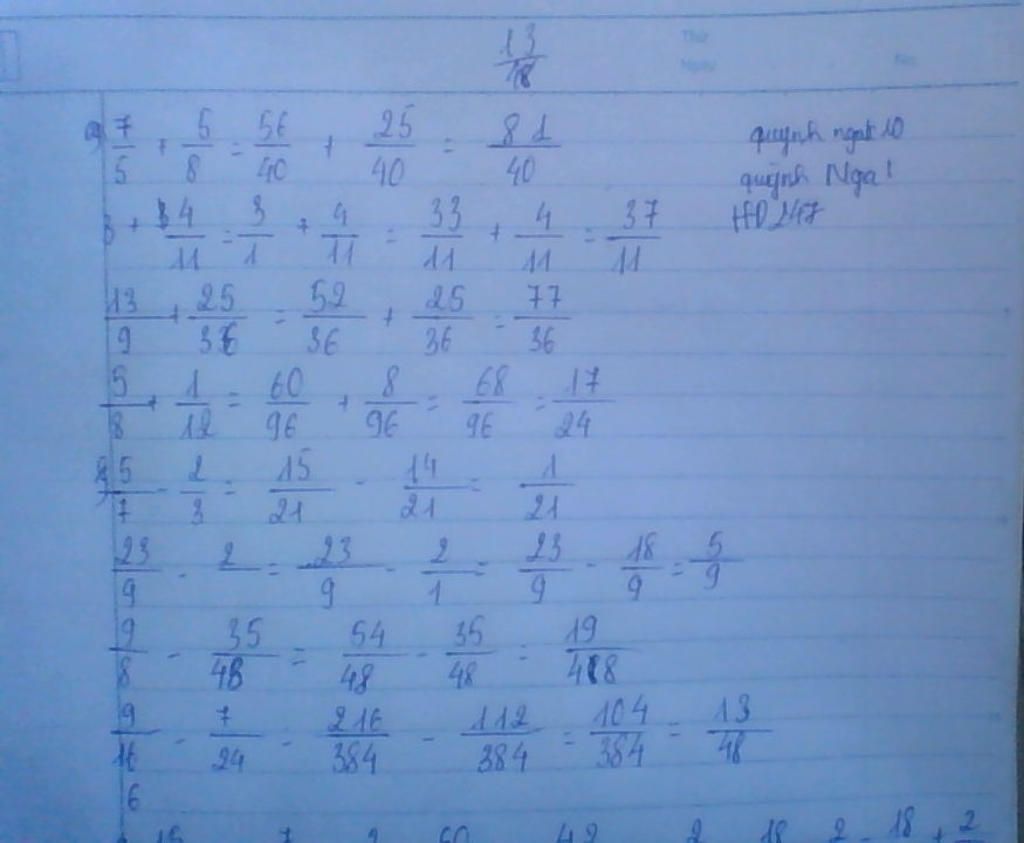 13/18
Thứ
Ngày
No.
a) 7/5 + 5/8 = 56/40 + 25/40 = 81/40
quỳnh ngat 10
quỳnh Nga!
HD247
3 + 4/11 = 3/1 + 4/11 = 33/11 + 4/11 = 37/11
13/9 + 25/36 = 52/36 + 25/36 = 77/36
5/8 + 1/12 = 60/96 + 8/96 = 68/96 = 17/24
5/7 - 2/3 = 15/21 - 14/21 = 1/21
23/9 - 2 = 23/9 - 2/1 = 23/9 - 18/9 = 5/9
9/8 - 35/48 = 54/48 - 35/48 = 19/48
9/16 - 7/24 = 216/384 - 112/384 = 104/384 = 13/48
6